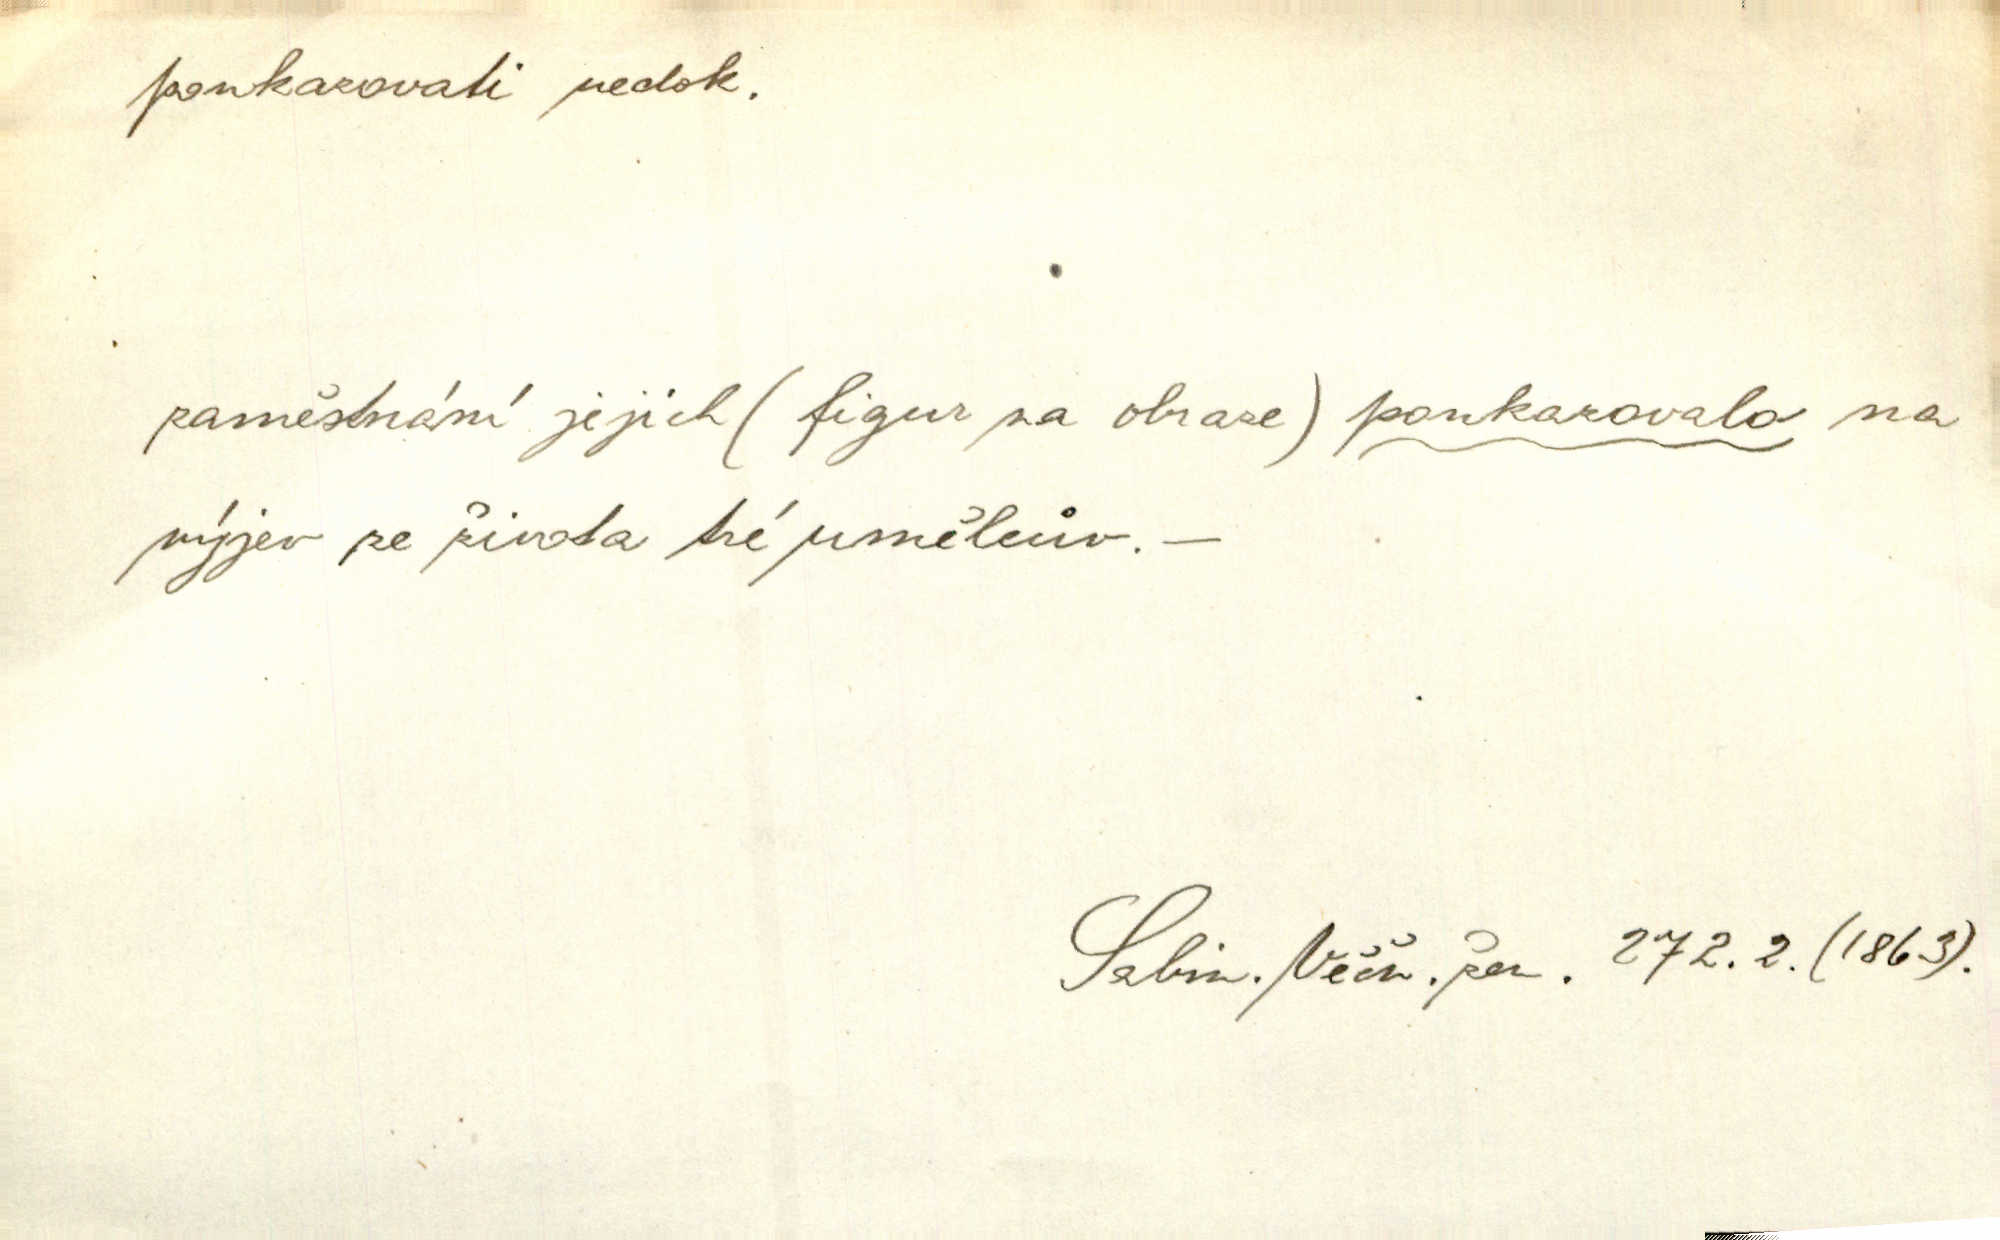 poukazovati nedok.
zaměstnání jejich (figur na obraze) poukazovalo na
výjev ze života té umělcův. —
Sabin. Věčn. žen. 272. 2. (1863).